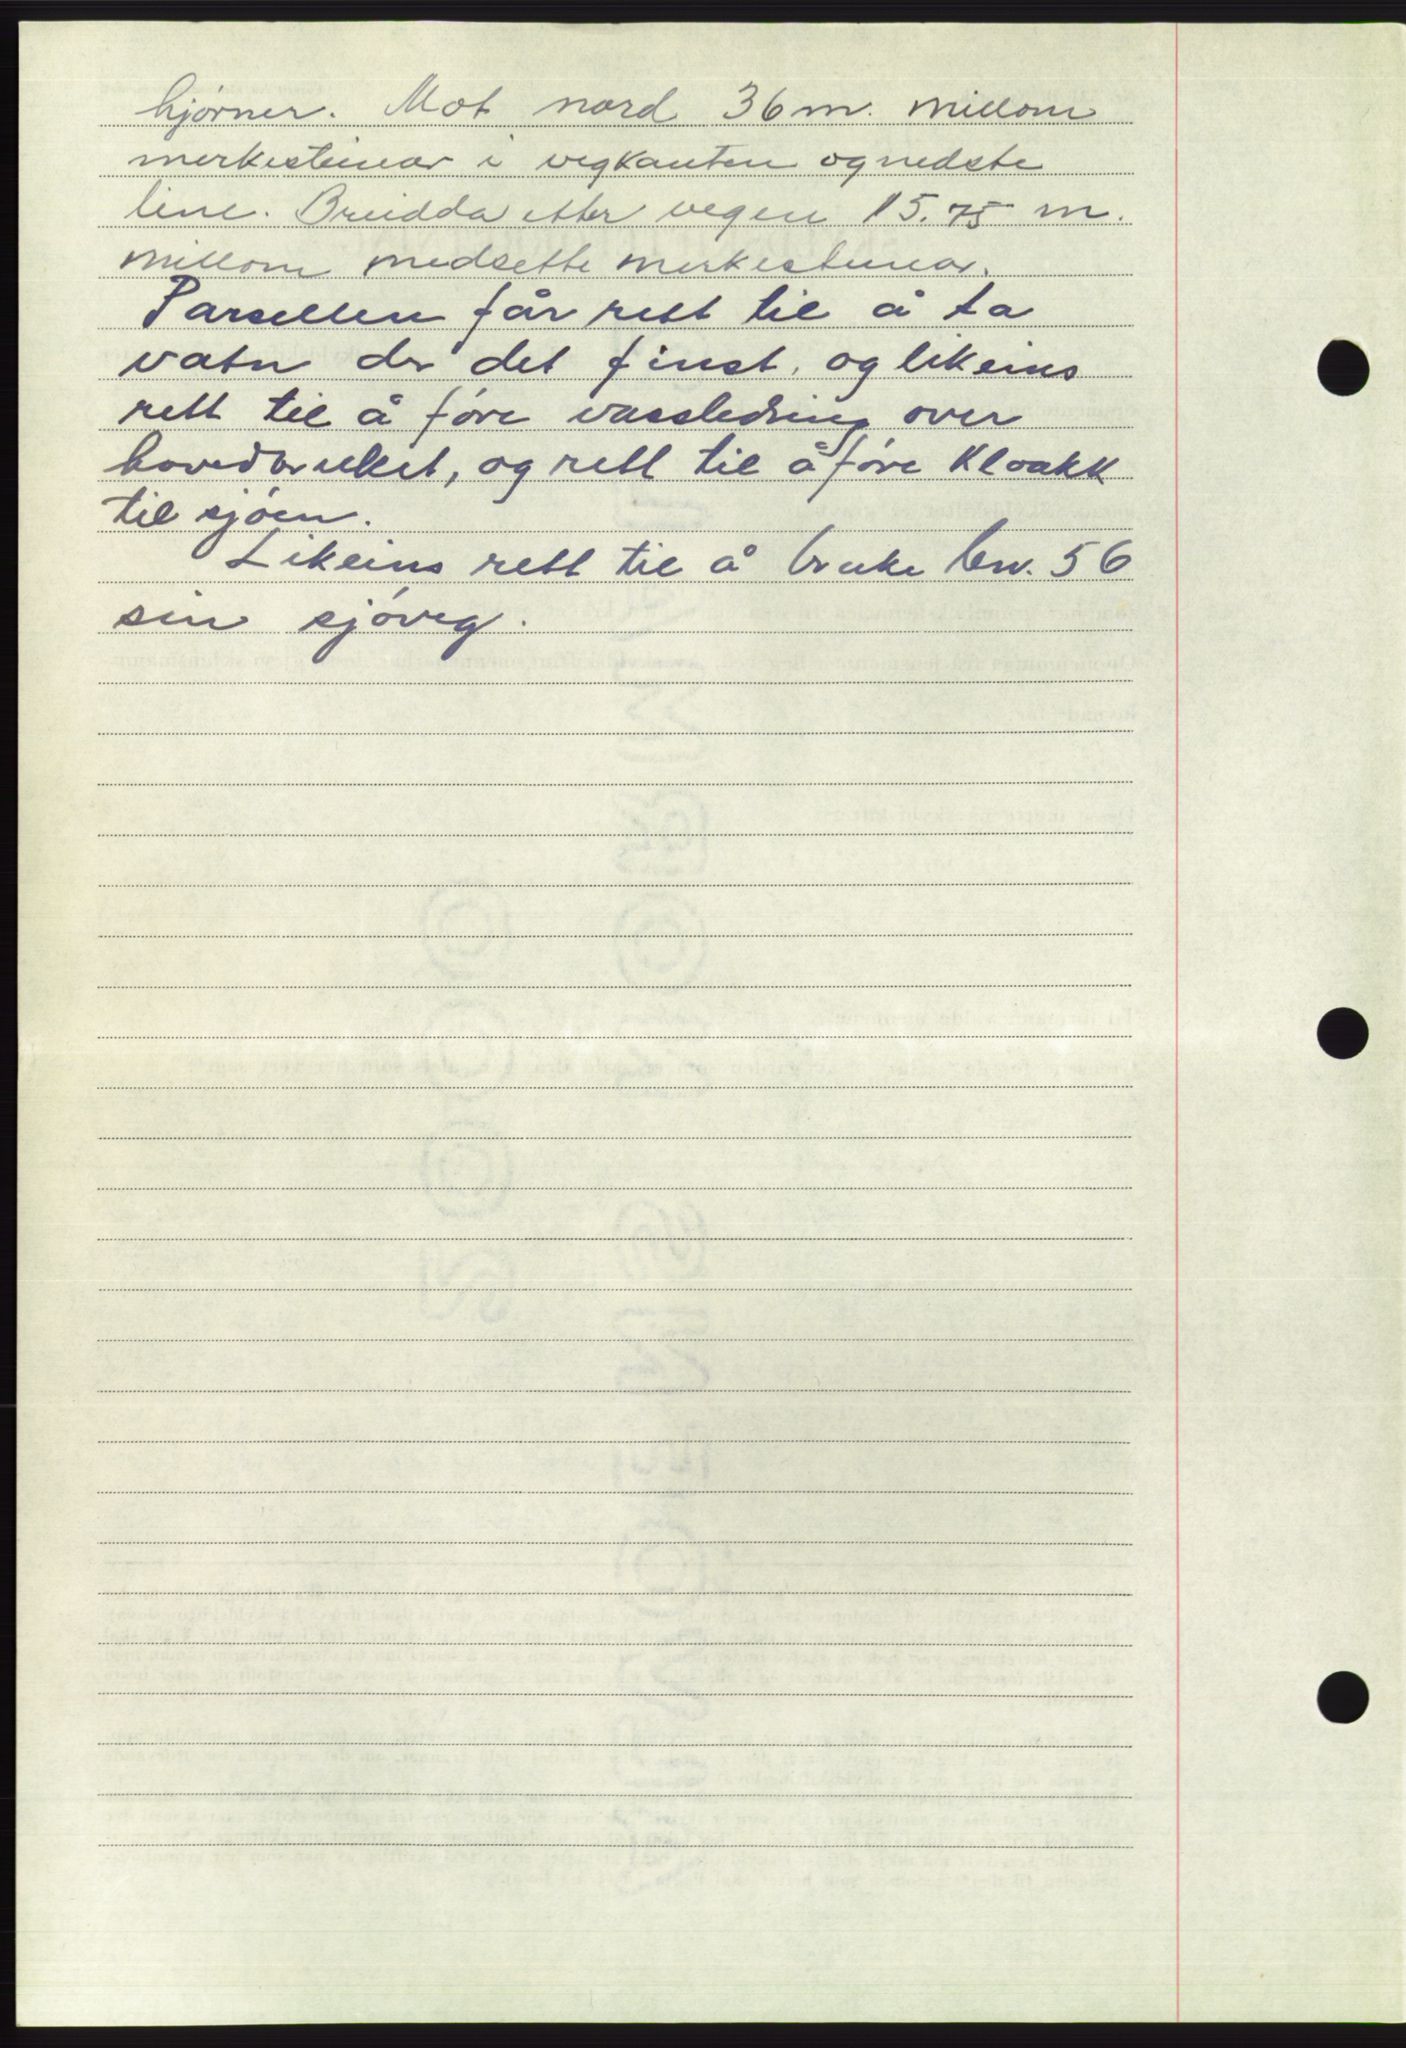 hjørner. Mot nord 36 m. millom
merkesteinar i vegkanten og nedste
line. Breidda etter vegen 15.75 m.
millom nedsette merkesteinar.
Parsellen får rett til å ta
vatn der det finst, og likeins
rett til å føre vassledning over
hovedbruket, og rett til å føre kloakk
til sjøen.
Likeins rett til å bruke bnr. 56
sin sjøveg.